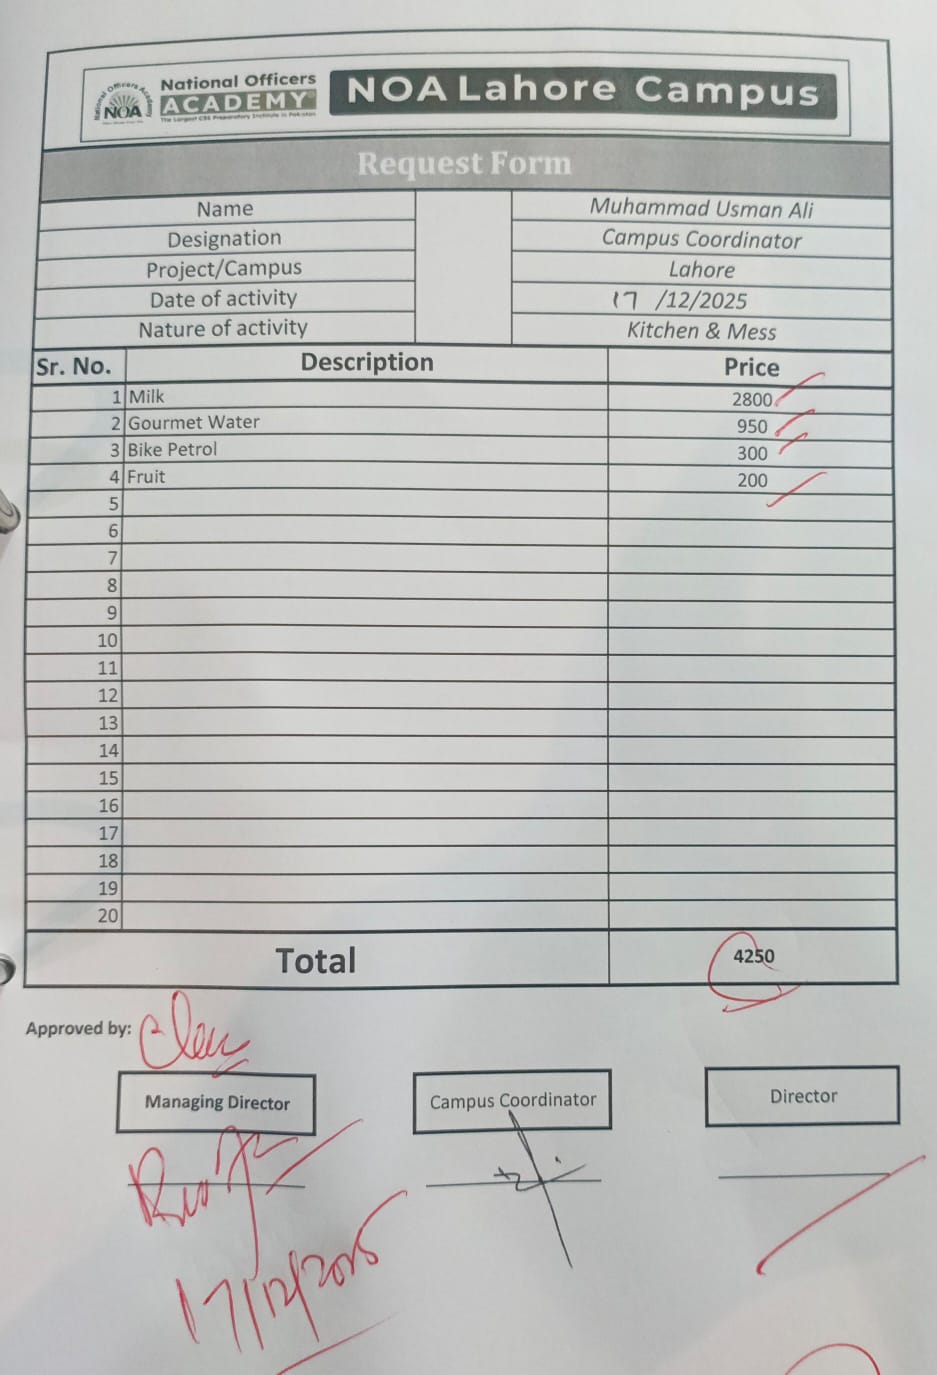 National Officers Academy
NOA
National Officers
ACADEMY
The Largest CSS Preparatory Institute in Pakistan
NOA Lahore Campus
Request Form
Name Muhammad Usman Ali
Designation Campus Coordinator
Project/Campus Lahore
Date of activity 17 /12/2025
Nature of activity Kitchen & Mess
Sr. No. Description Price
1 Milk 2800
2 Gourmet Water 950
3 Bike Petrol 300
4 Fruit 200
5
6
7
8
9
10
11
12
13
14
15
16
17
18
19
20
Total 4250
Approved by:
Managing Director Campus Coordinator Director
17/12/2025